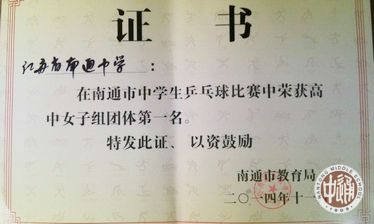 证 书
江苏省南通中学：
在南通市中学生乒乓球比赛中荣获高
中女子组团体第一名。
特发此证、以资鼓励
南通市教育局
二〇一四年十一
NANTONG MIDDLE SCHOOL
中通
1909